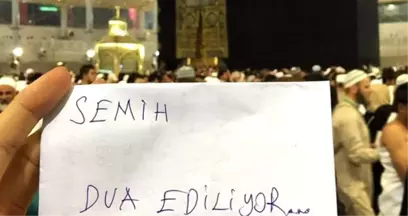 SEMİH
DUA EDİLİYOR...